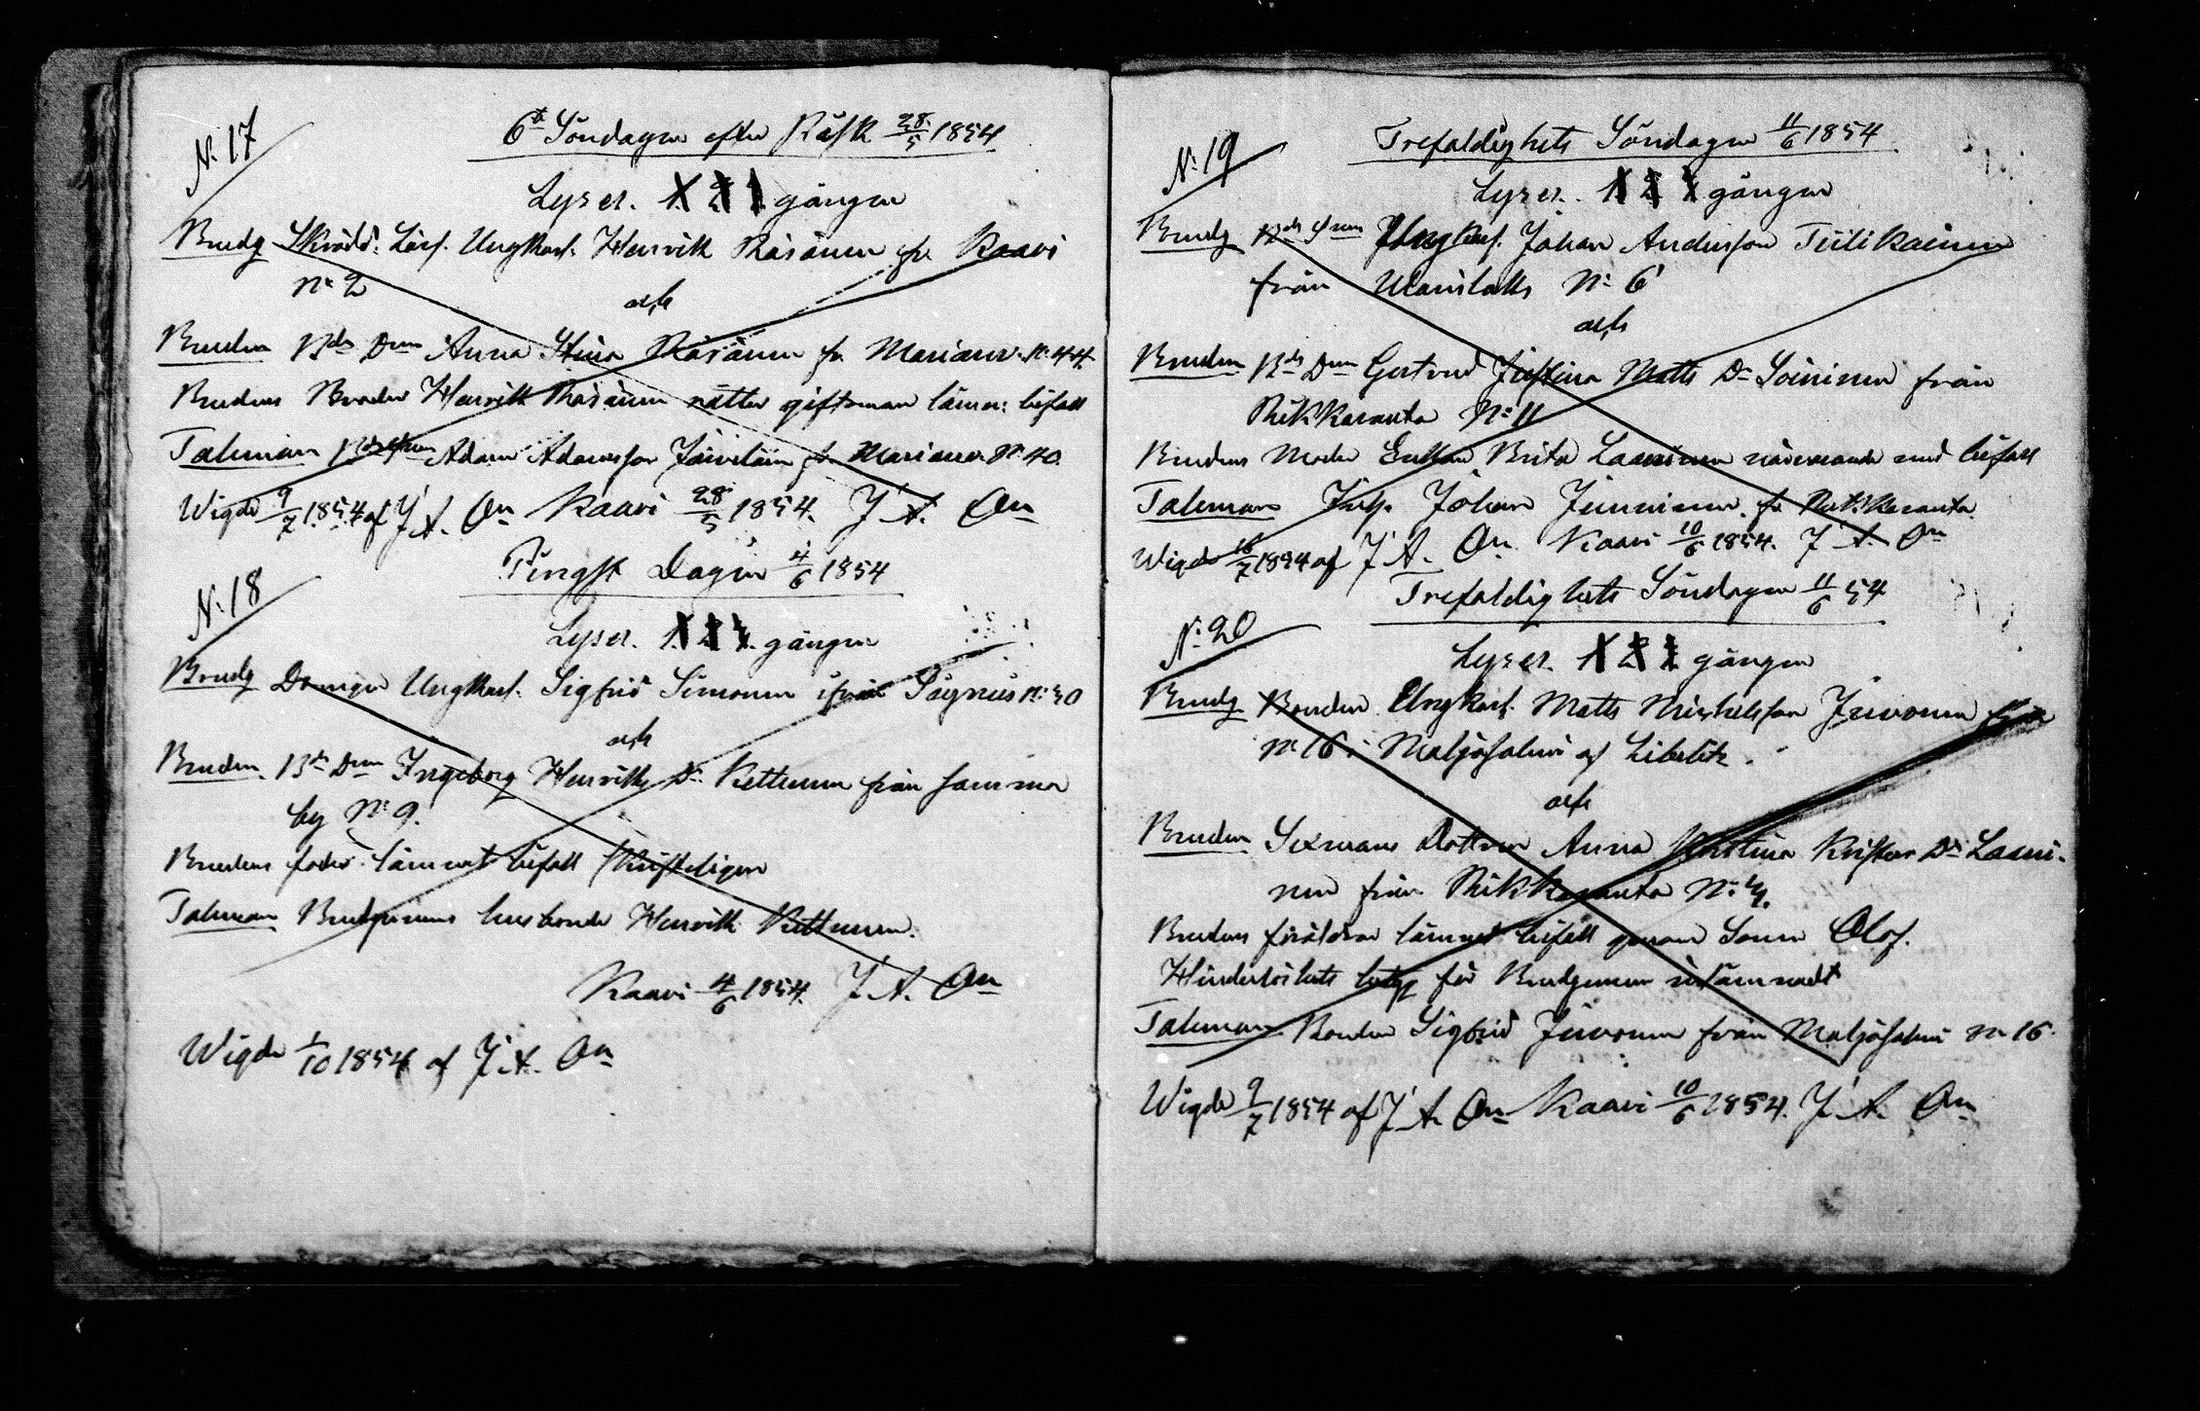 N. 17
6te Söndagen efter Påsk 28/5 1854
Lyses. 1. 2. 3. gången
Brudg Skrädd. Lärl. Ungkarl. Henrik Räsänen fr. Kaavi
No 2
och
Bruden Bds Dren Anna Stina Räsänen fr. Mariavr. N. 44.
Brudens Broder Henrik Räsänen rätter giftoman lämn: bifall
Talman Adam Adamsson fr. No 40.
Wigde 9/7 1854 af J A. On Kaavi 28/5 1854. J A. On
Pingst Dagen 4/6 1854
N. 18
Lyses. 1. 2. 3. gången
Brudg Drengen Ungkarl. Sigfrid Simonen ifrån No 30
och
Bruden Bds Dren Ingeborg Henriks Dr Kettunen från samma
by No 9.
Brudens fader lämnat bifall skrifteligen
Talman Brudgummens husbonde Henrik Kettunen.
Kaavi 4/6 1854. J A. On
Wigde 1/10 1854 af J A. On
N. 19
Trefaldighets Söndagen 11/6 1854
Lyses. 1 2 3 gången
Brudg Bds Snen Ungkarl. Johan Andersson Tiilikainen
från No 6
och
Bruden Bds Dren Gertrud Justina Matts Dr Soininen från
Rikkaranta No 11
Brudens Moder Enkan Brita Laaninen närvarande med bifall
Talman Johan fr. Rikkaranta.
Wigde 16/7 1854 af J A. On Kaavi 10/6 1854. J A. On
Trefaldighets Söndagen 11/6 54
N. 20
Lyses. 1 2 3 gången
Brudg Bonden Ungkarl. Matts Michelsson Juvonen
No 16 i Maljasalmi af Libelitz.
och
Bruden Sexmans Dottren Anna Kristina Kristers Dr Laani-
nen från Rikkaranta No 4.
Brudens föräldrar lämnat bifall genom Sonen Olof.
Hinderlöshets betyg för Brudgummen inlämnadt
Talman Bonden Sigfrid Juvonen från Maljasalmi No 16
Wigde 9/7 1854 af J A. On Kaavi 10/6 1854. J A. On